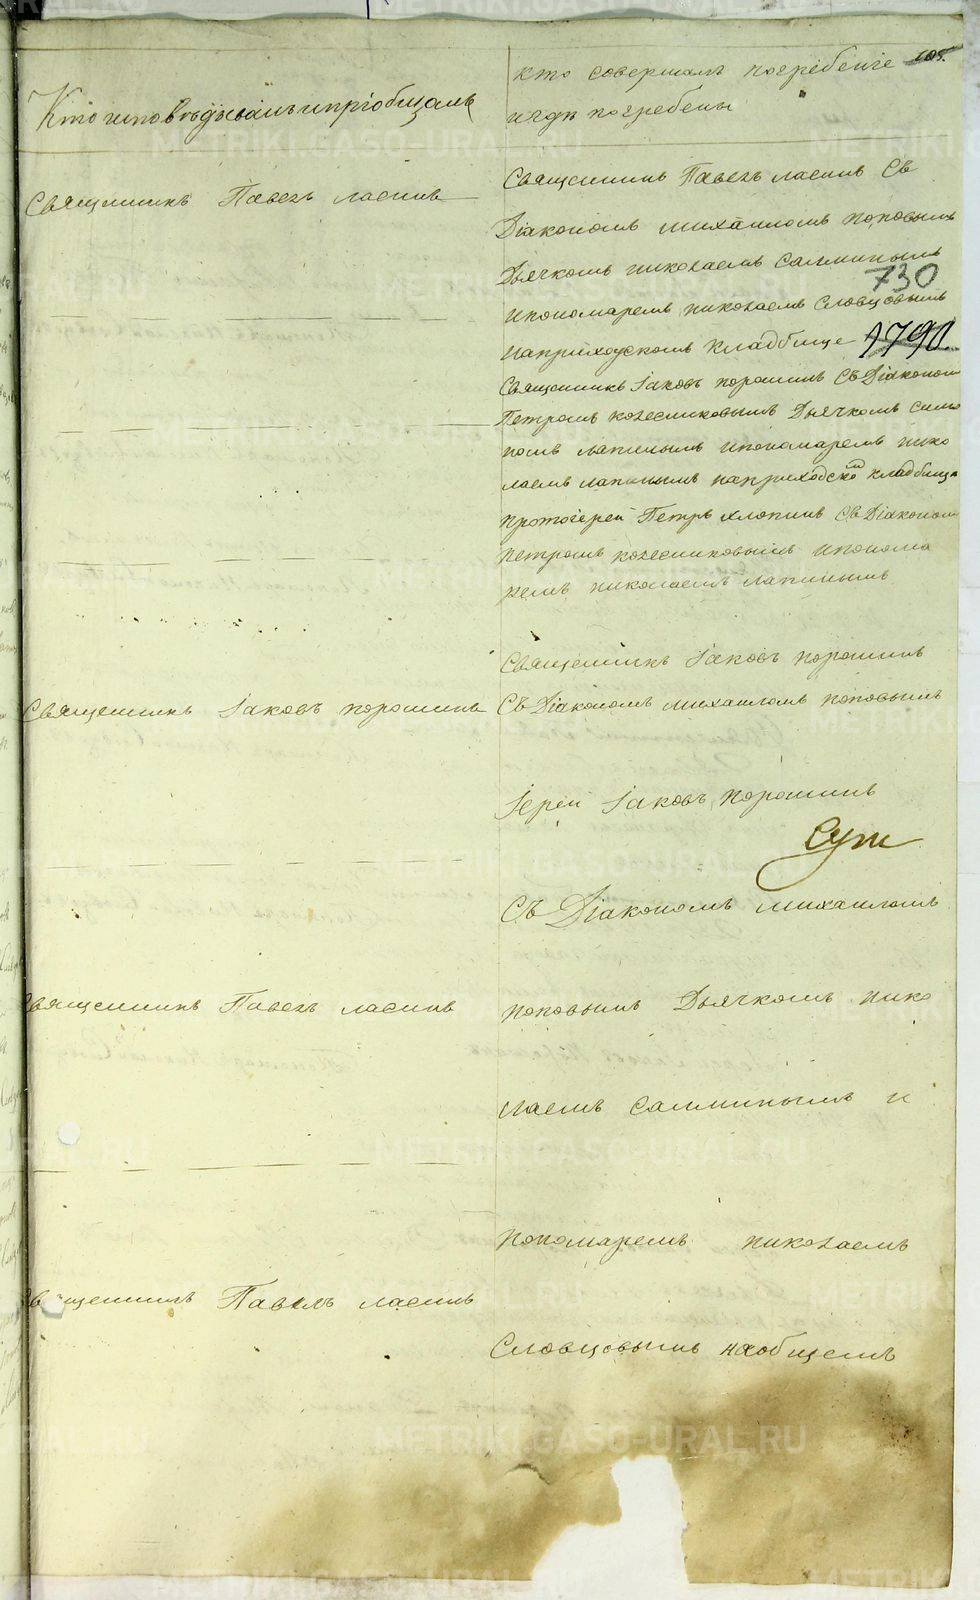 105.
Кто исповѣдывалъ и пріобщалъ
кто совершалъ погребеніе
и гдѣ погребены
Священникъ Павелъ
Священникъ Павелъ
Діакономъ михаиломъ поповымъ
Дьячкомъ николаемъ
730
и пономаремъ николаемъ Словцовымъ
на приходскомъ кладбище
1791
Священникъ Іаковъ порошинъ Съ Діакономъ
Петромъ колесниковымъ Дьячкомъ Симо
номъ лапинымъ и пономаремъ нико
лаемъ лапинымъ на приходском кладбище
протоіерей Петръ хлопинъ Съ Діакономъ
петромъ колесниковымъ и понома
ремъ николаемъ лапинымъ
Священникъ Іаковъ порошинъ
Священникъ Іаковъ порошинъ
Съ Діакономъ михаиломъ поповымъ
Іерей Іаковъ порошинъ
Съ Діакономъ михаиломъ
Священникъ Павелъ
поповымъ Дьячкомъ нико
лаемъ и
пономаремъ николаемъ
Священникъ Павелъ
Словцовымъ на общемъ
METRIKI.GASO-URAL.RU